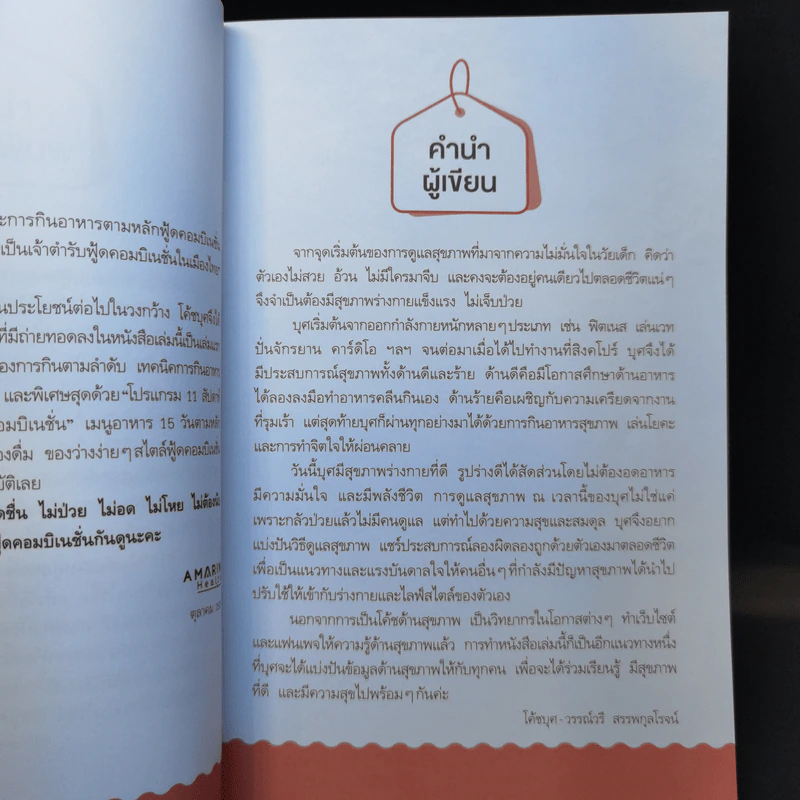 ะการกินอาหารตามหลักฟู้ดคอมบิเนชั่น
เป็นเจ้าตำรับฟู้ดคอมบิเนชั่นในเมืองไทย
นประโยชน์ต่อไปในวงกว้าง โค้ชบุศจึงได้
ที่มีถ่ายทอดลงในหนังสือเล่มนี้เป็นเล่มแรก
องการกินตามลำดับ เทคนิคการกินอาหาร
และพิเศษสุดด้วย“โปรแกรม 11 สัปดาห์
อมบิเนชั่น” เมนูอาหาร 15 วันตามหลัก
องดื่ม ของว่างง่ายๆ สไตล์ฟู้ดคอมบิเนชั่น
บัติเลย
ดชื่น ไม่ป่วย ไม่อด ไม่โหย ไม่ต้องนับ
ฟู้ดคอมบิเนชั่นกันดูนะคะ
AMARIN
Health
ตุลาคม
คำนำ
ผู้เขียน
จากจุดเริ่มต้นของการดูแลสุขภาพที่มาจากความไม่มั่นใจในวัยเด็ก คิดว่า
ตัวเองไม่สวย อ้วน ไม่มีใครมาจีบ และคงจะต้องอยู่คนเดียวไปตลอดชีวิตแน่ๆ
จึงจำเป็นต้องมีสุขภาพร่างกายแข็งแรง ไม่เจ็บป่วย
บุศเริ่มต้นจากออกกำลังกายหนักหลายๆ ประเภท เช่น ฟิตเนส เล่นเวท
ปั่นจักรยาน คาร์ดิโอ ฯลฯ จนต่อมาเมื่อได้ไปทำงานที่สิงคโปร์ บุศจึงได้
มีประสบการณ์สุขภาพทั้งด้านดีและร้าย ด้านดีคือมีโอกาสศึกษาด้านอาหาร
ได้ลองลงมือทำอาหารคลีนกินเอง ด้านร้ายคือเผชิญกับความเครียดจากงาน
ที่รุมเร้า แต่สุดท้ายบุศก็ผ่านทุกอย่างมาได้ด้วยการกินอาหารสุขภาพ เล่นโยคะ
และการทำจิตใจให้ผ่อนคลาย
วันนี้บุศมีสุขภาพร่างกายที่ดี รูปร่างดีได้สัดส่วนโดยไม่ต้องอดอาหาร
มีความมั่นใจ และมีพลังชีวิต การดูแลสุขภาพ ณ เวลานี้ของบุศไม่ใช่แค่
เพราะกลัวป่วยแล้วไม่มีคนดูแล แต่ทำไปด้วยความสุขและสมดุล บุศจึงอยาก
แบ่งปันวิธีดูแลสุขภาพ แชร์ประสบการณ์ลองผิดลองถูกด้วยตัวเองมาตลอดชีวิต
เพื่อเป็นแนวทางและแรงบันดาลใจให้คนอื่นๆ ที่กำลังมีปัญหาสุขภาพได้นำไป
ปรับใช้ให้เข้ากับร่างกายและไลฟ์สไตล์ของตัวเอง
นอกจากการเป็นโค้ชด้านสุขภาพ เป็นวิทยากรในโอกาสต่างๆ ทำเว็บไซต์
และแฟนเพจให้ความรู้ด้านสุขภาพแล้ว การทำหนังสือเล่มนี้ก็เป็นอีกแนวทางหนึ่ง
ที่บุศจะได้แบ่งปันข้อมูลด้านสุขภาพให้กับทุกคน เพื่อจะได้ร่วมเรียนรู้ มีสุขภาพ
ที่ดี และมีความสุขไปพร้อมๆ กันค่ะ
โค้ชบุศ - วรรณ์วรี สรรพกุลโรจน์